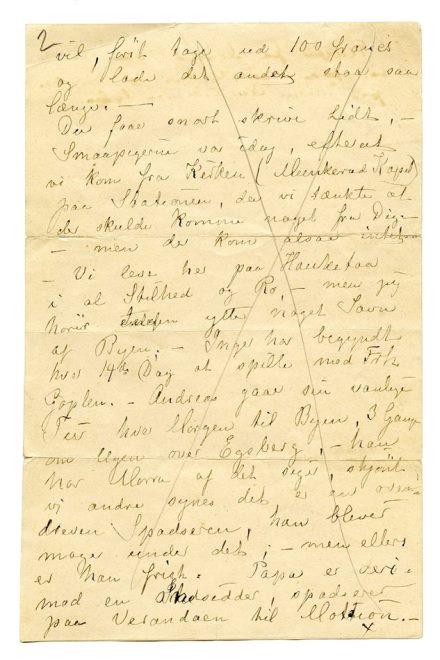 2
vil, først tage ud 100 francs
og lade det andet staa saa
længe. —
Du faar snart skrive hidt, —
Smaapigerne var idag, efterat
vi kom fra Kirken (Munkerud Kapel)
paa Stationen, da vi tænkte at
der skulde komme noget fra Dig —
— men der kom altsaa intet —
— Vi leve her paa Haukstaa
i al Stilhed og Ro, — men jeg
hører ikke noget Savn
af Byen. — Inga har begyndt
hver 14de Dag at spille med Frk
Goplen. — Andreas gaar sin vanlige
Tur hver Morgen til Byen, 3 Gange
om Ugen over Egsberg, — han
har Morro af det siger, skjønt
vi andre synes det er en over-
dreven Spadseren, han blever
mager under det; — men ellers
er Han frisk. Papa er
mod en Stadsedder, spadserer
paa Verandaen til Motion. —
x